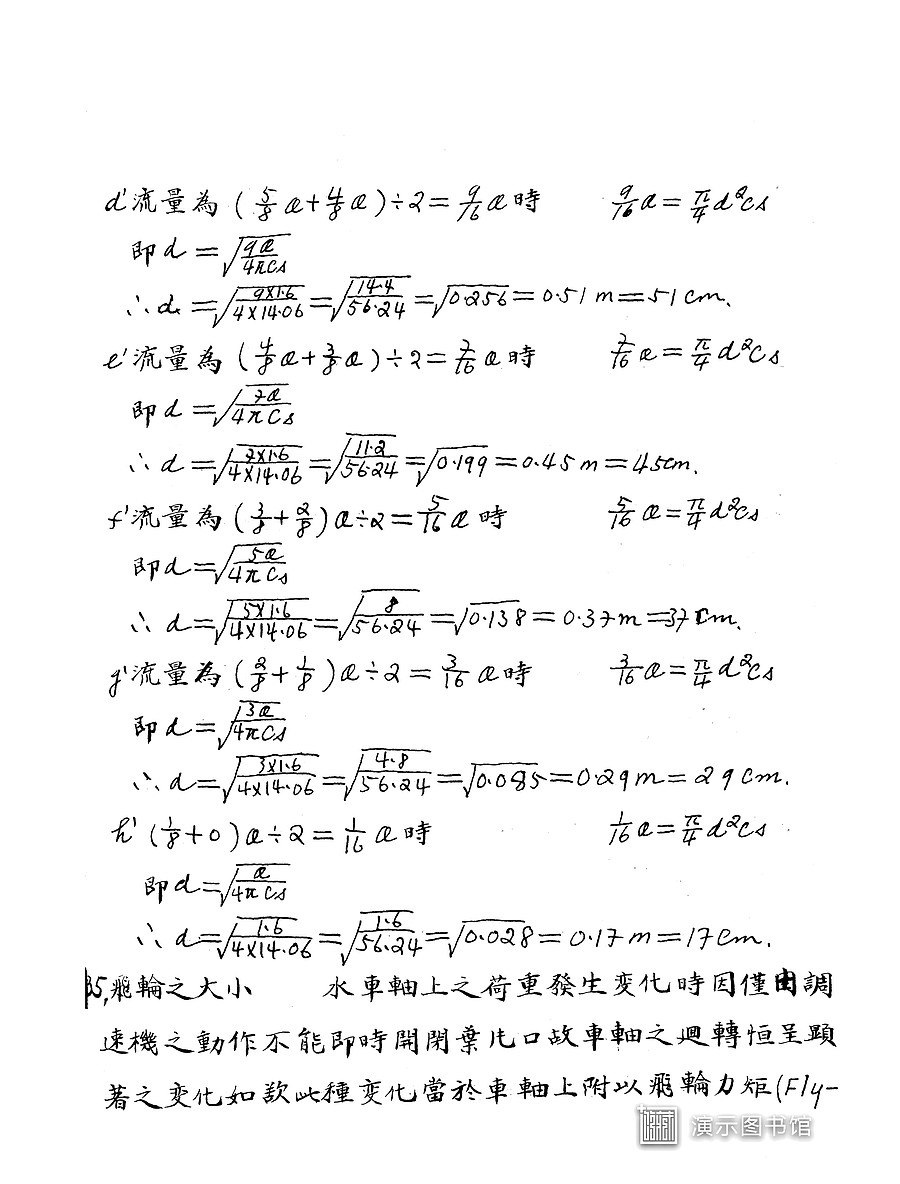 d' 流量為 (5/8 Q + 4/8 Q) ÷ 2 = 9/16 Q 時 9/16 Q = π/4 d²Cs
即 d = √(9Q/4πCs)
∴ d = √(9×1.6/4×14.06) = √(14.4/56.24) = √0.256 = 0.51 m = 51 cm.
e' 流量為 (4/8 Q + 3/8 Q) ÷ 2 = 7/16 Q 時 7/16 Q = π/4 d²Cs
即 d = √(7Q/4πCs)
∴ d = √(7×1.6/4×14.06) = √(11.2/56.24) = √0.199 = 0.45 m = 45 cm.
f' 流量為 (3/8 + 2/8) Q ÷ 2 = 5/16 Q 時 5/16 Q = π/4 d²Cs
即 d = √(5Q/4πCs)
∴ d = √(5×1.6/4×14.06) = √(8/56.24) = √0.138 = 0.37 m = 37 cm.
g' 流量為 (2/8 + 1/8) Q ÷ 2 = 3/16 Q 時 3/16 Q = π/4 d²Cs
即 d = √(3Q/4πCs)
∴ d = √(3×1.6/4×14.06) = √(4.8/56.24) = √0.085 = 0.29 m = 29 cm.
h' (1/8 + 0) Q ÷ 2 = 1/16 Q 時 1/16 Q = π/4 d²Cs
即 d = √(Q/4πCs)
∴ d = √(1.6/4×14.06) = √(1.6/56.24) = √0.028 = 0.17 m = 17 cm.
35, 飛輪之大小 水車軸上之荷重發生变化時因僅由調
速機之動作不能即時開閉葉片口故車軸之迴轉恒呈顕
著之变化如欲此種变化當於車軸上附以飛輪力矩(Fly-
演示图书馆